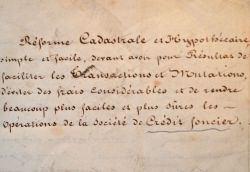 Réforme Cadastrale et Hypothécaire
simple et facile, devant avoir pour Résultat de
faciliter les Transactions et Mutations,
d'éviter des frais Considérables et de rendre
beaucoup plus faciles et plus sûres les —
Opérations de la Société de Crédit foncier.